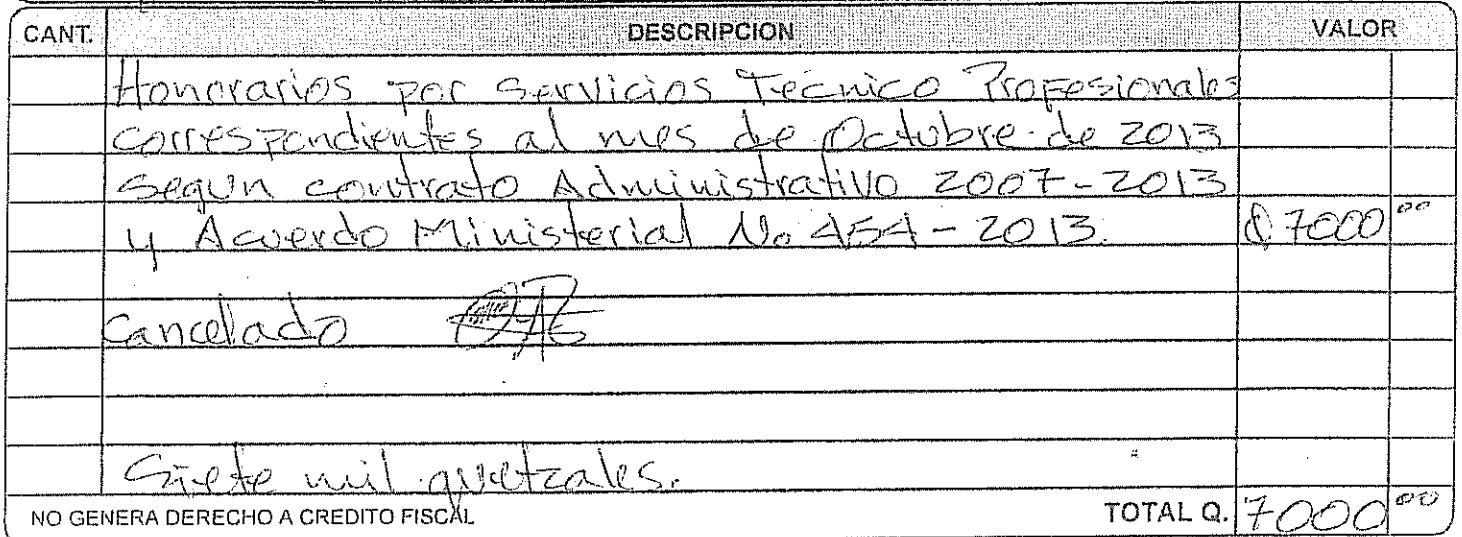 CANT. DESCRIPCION VALOR
Honorarios por Servicios Tecnico Profesionales
correspondientes al mes de Octubre de 2013
segun contrato Administrativo 2007-2013
y Acuerdo Ministerial No 454-2013. Q 7000 00
Cancelado
Siete mil quetzales.
NO GENERA DERECHO A CREDITO FISCAL TOTAL Q. 7000 00